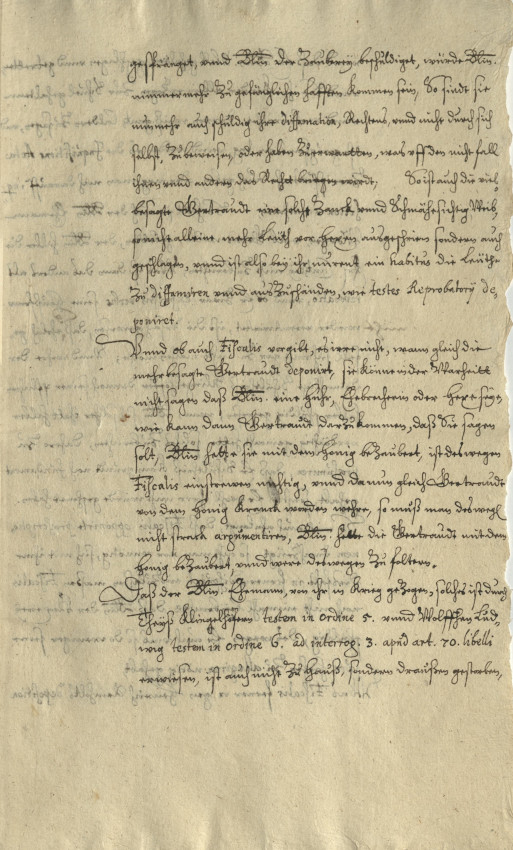 geschendet, vnnd Bltin der Zauberey beschuldiget, würde Bltin.
nimmermehr zu gefänglichen hafften kommen sein, So sindt sie
nunmehr auch schuldig ihre diffamation, Rechtens, vnnd nicht durch sich
selbst, zubeweisen, oder haben zuerwartten, was vff den nicht fall
ihnen vnnd andern das Recht bringen werdt, So ist auch die viel-
besagte Gertraudt eine solche Zanck vnnd Schmähesichtig Weib
so nicht alleine mehr Leuth vor Hexen ausgeschrien sondern auch
geschlagen, vnnd ist also bey ihr nurent ein habitus die Leuthe
zu diffamiren vnnd auszuschänden, wie testes Reprobatory de-
poniret.
Vnnd ob auch Fiscalis vorgibt, es irre nicht, wann gleich die
mehrbesagte Gertraudt deponirt, sie könne in der Warheitt
nicht sagen daß Bltin. eine Huhr, Ehebrecherin oder Hexe seye,
wie kann dann Gertraudt darzu kommen, daß Sie sagen
solt, Bltin hette sie mit dem Honig bezaubert, ist deswegen
Fiscalis einstrewen nichtig, vnnd da nun gleich Gertraudt
von dem Honig Kranck worden wehre, so muß man deswegen
nicht strack argumentiren, Bltin. hette die Gertraudt mit dem
honig bezaubert, vnnd were deswegen zu foltern.
Daß der Bltin. Ehemann, von ihr in Krieg gezogen, solches ist durch
Theyß Klingelhöfern testem in ordine 5. vnnd Wolffhen Lud-
wig testem in ordine 6. ad interrog. 3. apud art. 70. libelli
erwiesen, ist auch nicht zu hauß, sondern draußen gestorben,